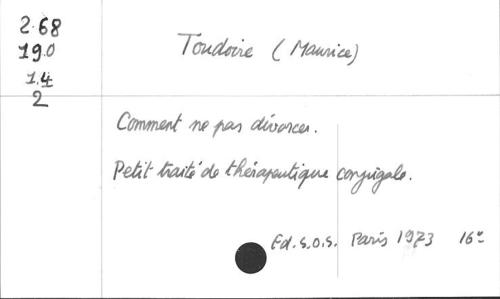 2.68
19.0
1.4
2
Toudoire (Maurice)
Comment ne pas divorcer.
Petit traité de thérapeutique conjugale.
Ed. S.O.S. Paris 1973 16°